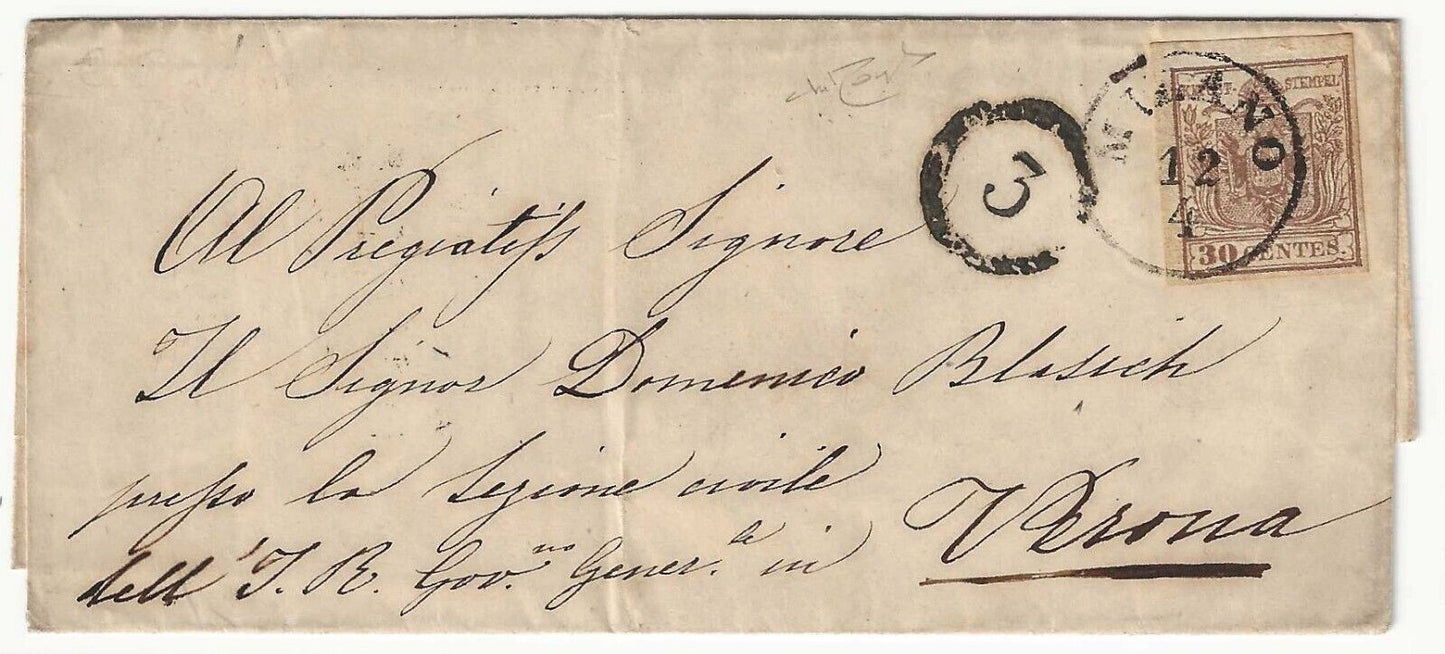 KK POST-STEMPEL
MILANO
12
4
3
30 CENTES.
Al Pregiatiss Signore
Il Signor Domenico Blasich
presso la Sezione civile
dell' I. R. Gov.no Gener.le in Verona